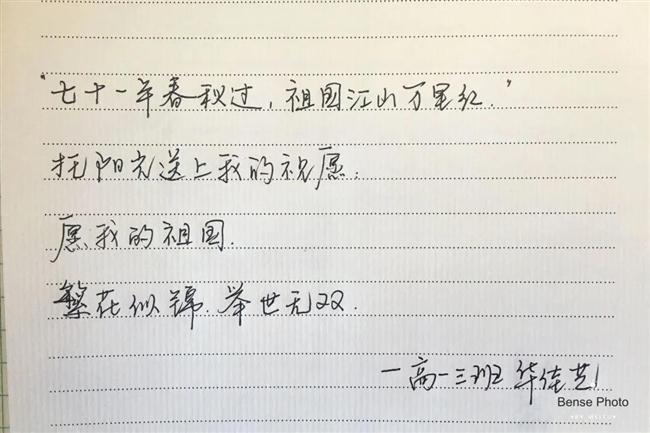 “七十一年春秋过，祖国江山万里红.”
托阳光送上我的祝愿：
愿我的祖国.
繁花似锦.举世无双.
一高一三班 华佳艺
Bense Photo